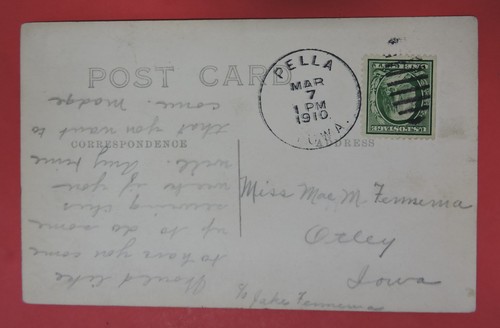 POST CARD
CORRESPONDENCE
ADDRESS
PELLA
MAR
7
1 PM
1910
IOWA.
Would like
to have you come
up to do some
sewing this
week if you
will. Any time
that you want to
come. Madge
Miss Mae M Fennema
Otley
Iowa
c/o Jake Fennema